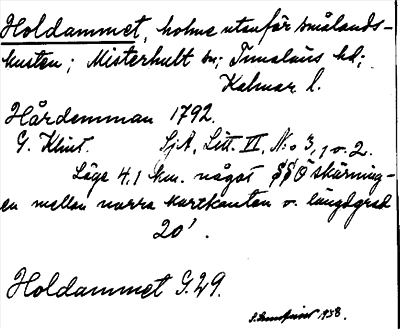 Holdammet, holme utanför Smålands-
kusten; Misterhult sn; Tunaläns hd;
Kalmar l.
Hårdemman 1792.
G. Klint. SjA, Litt. II, N:o 3, 1 o. 2.
Läge 4,1 km. något SSÖ skärning-
en mellan norra kartkanten o. längdgrad
20'.
Holdammet G.29.
1938.